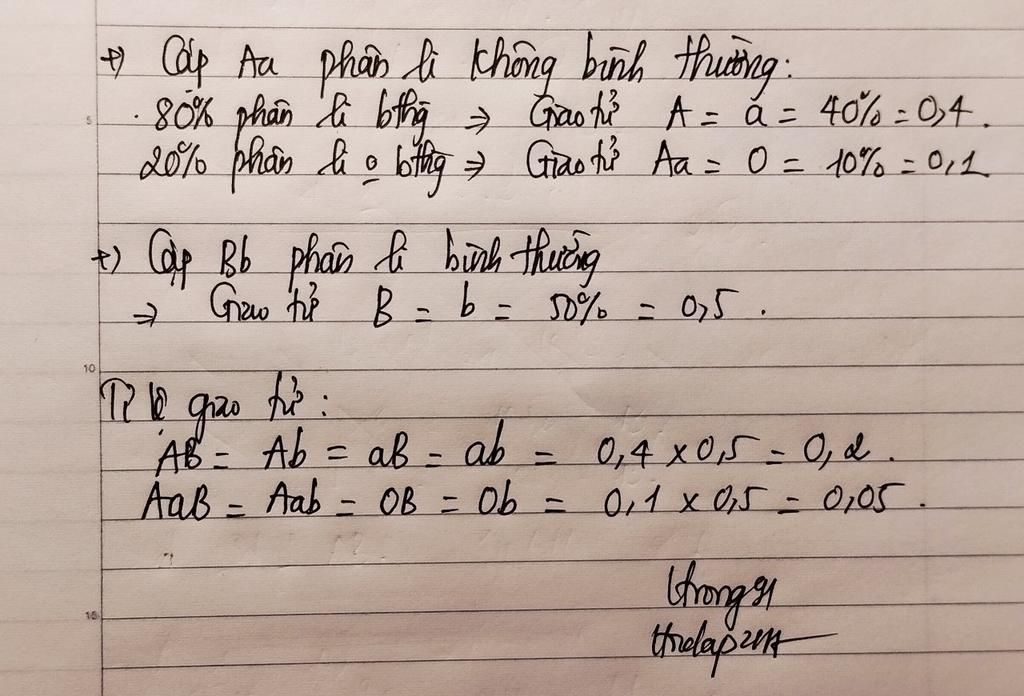 +) Cặp Aa phân li không bình thường:
. 80% phân li bthg ⇒ Giao tử A = a = 40% = 0,4.
20% phân li o bthg ⇒ Giao tử Aa = O = 10% = 0,1
+) Cặp Bb phân li bình thường
⇒ Giao tử B = b = 50% = 0,5.
10
Tỉ lệ giao tử:
AB = Ab = aB = ab = 0,4 x 0,5 = 0,2.
AaB = Aab = OB = Ob = 0,1 x 0,5 = 0,05.
15